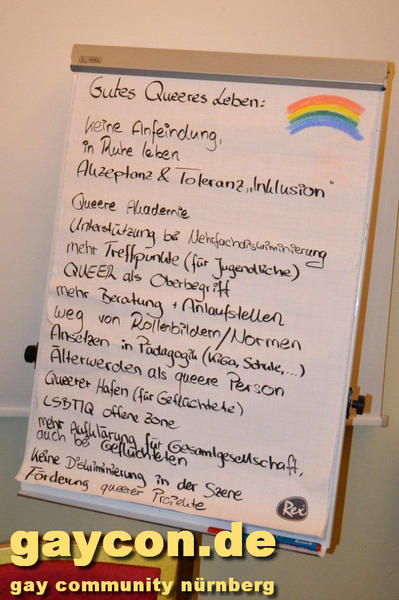 Gutes Queeres Leben:
keine Anfeindung,
in Ruhe leben
Akzeptanz & Toleranz „Inklusion"
Queere Akademie
Unterstützung bei Mehrfachdiskriminierung
mehr Treffpunkte (für Jugendliche)
QUEER als Oberbegriff
mehr Beratung + Anlaufstellen
weg von Rollenbildern/Normen
Ansetzen in Pädagogik (KiGa, Schule,...)
Älterwerden als queere Person
Queerer Hafen (für Geflüchtete)
LSBTIQ offene Zone
mehr Aufklärung für Gesamtgesellschaft,
auch bei Geflüchteten
Keine Diskriminierung in der Szene
Förderung queerer Projekte
Rex
gaycon.de
gay community nürnberg